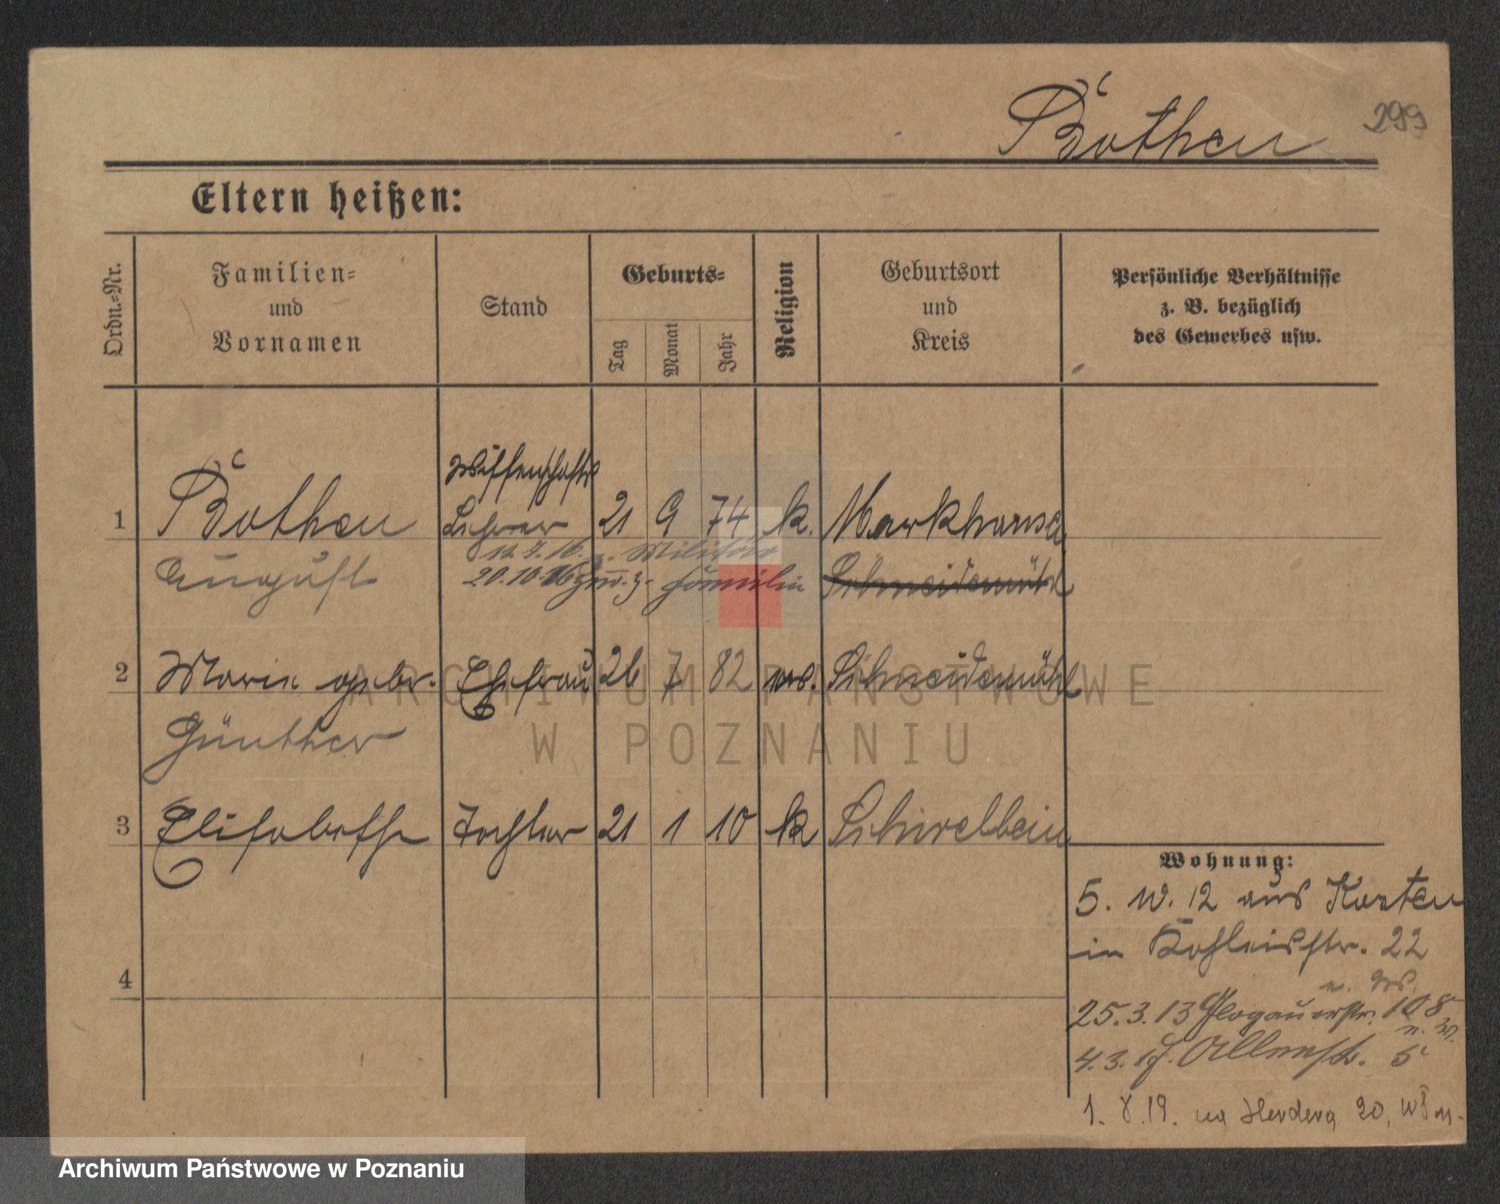 Bothen 299
Eltern heißen:
Ordn.-Nr.
Familien-
und
Vornamen
Stand
Geburts-
Tag
Monat
Jahr
Religion
Geburtsort
und
Kreis
Persönliche Verhältnisse
z. B. bezüglich
des Gewerbes usw.
Wissenschaftl
1 Bothen Lehrer 21 9 74 k.
August
z. Militär
20.10.16 z. Familie Schneidemühl
2 Marie gebr. Ehefrau 26 7 82 Schneidemühl
Günther
3 Elisabeth Tochter 21 1 10 k Schivelbein
4
Wohnung:
5. IV. 12 aus Kosten
in 22
25.3.13 Glogauerstr. 108
n. W.
4.3. Allenst. 5
1. 8. 19. na Herdera 20,
ARCHIWUM PAŃSTWOWE
W POZNANIU
Archiwum Państwowe w Poznaniu